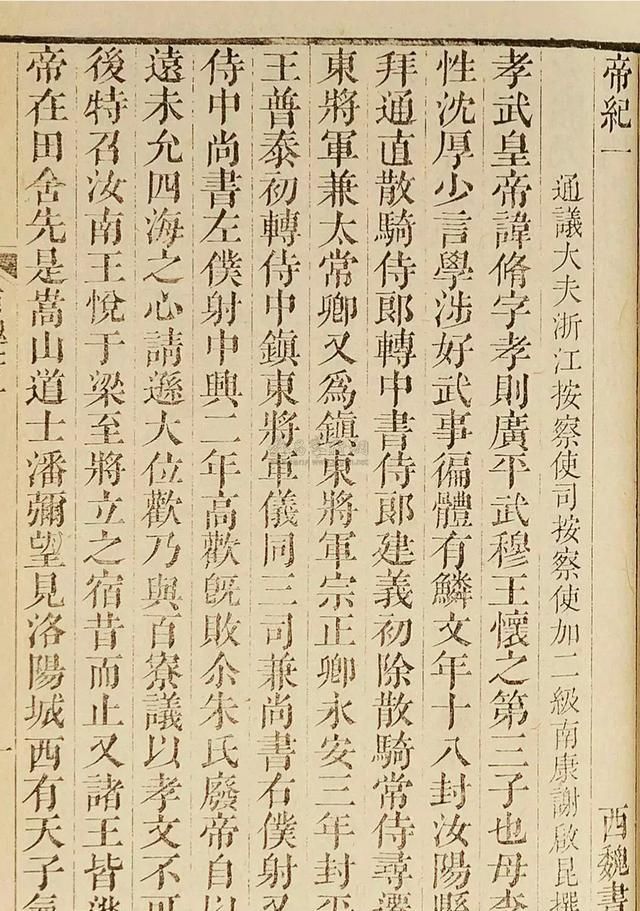 帝紀一 西魏書
通議大夫浙江按察使司按察使加二級南康謝啟昆撰
孝武皇帝諱脩字孝則廣平武穆王懷之第三子也母李
性沈厚少言學涉好武事徧體有鱗文年十八封汝陽縣
拜通直散騎侍郎轉中書侍郎建義初除散騎常侍尋遷
東將軍兼太常卿又為鎮東將軍宗正卿永安三年封平
王普泰初轉侍中鎮東將軍儀同三司兼尚書右僕射又
侍中尚書左僕射中興二年高歡旣敗尒朱氏廢帝自以
遠未允四海之心請遜大位歡乃與百寮議以孝文不可
後特召汝南王悅于梁至將立之宿昔而止又諸王皆逃
帝在田舍先是嵩山道士潘彌望見洛陽城西有天子氣